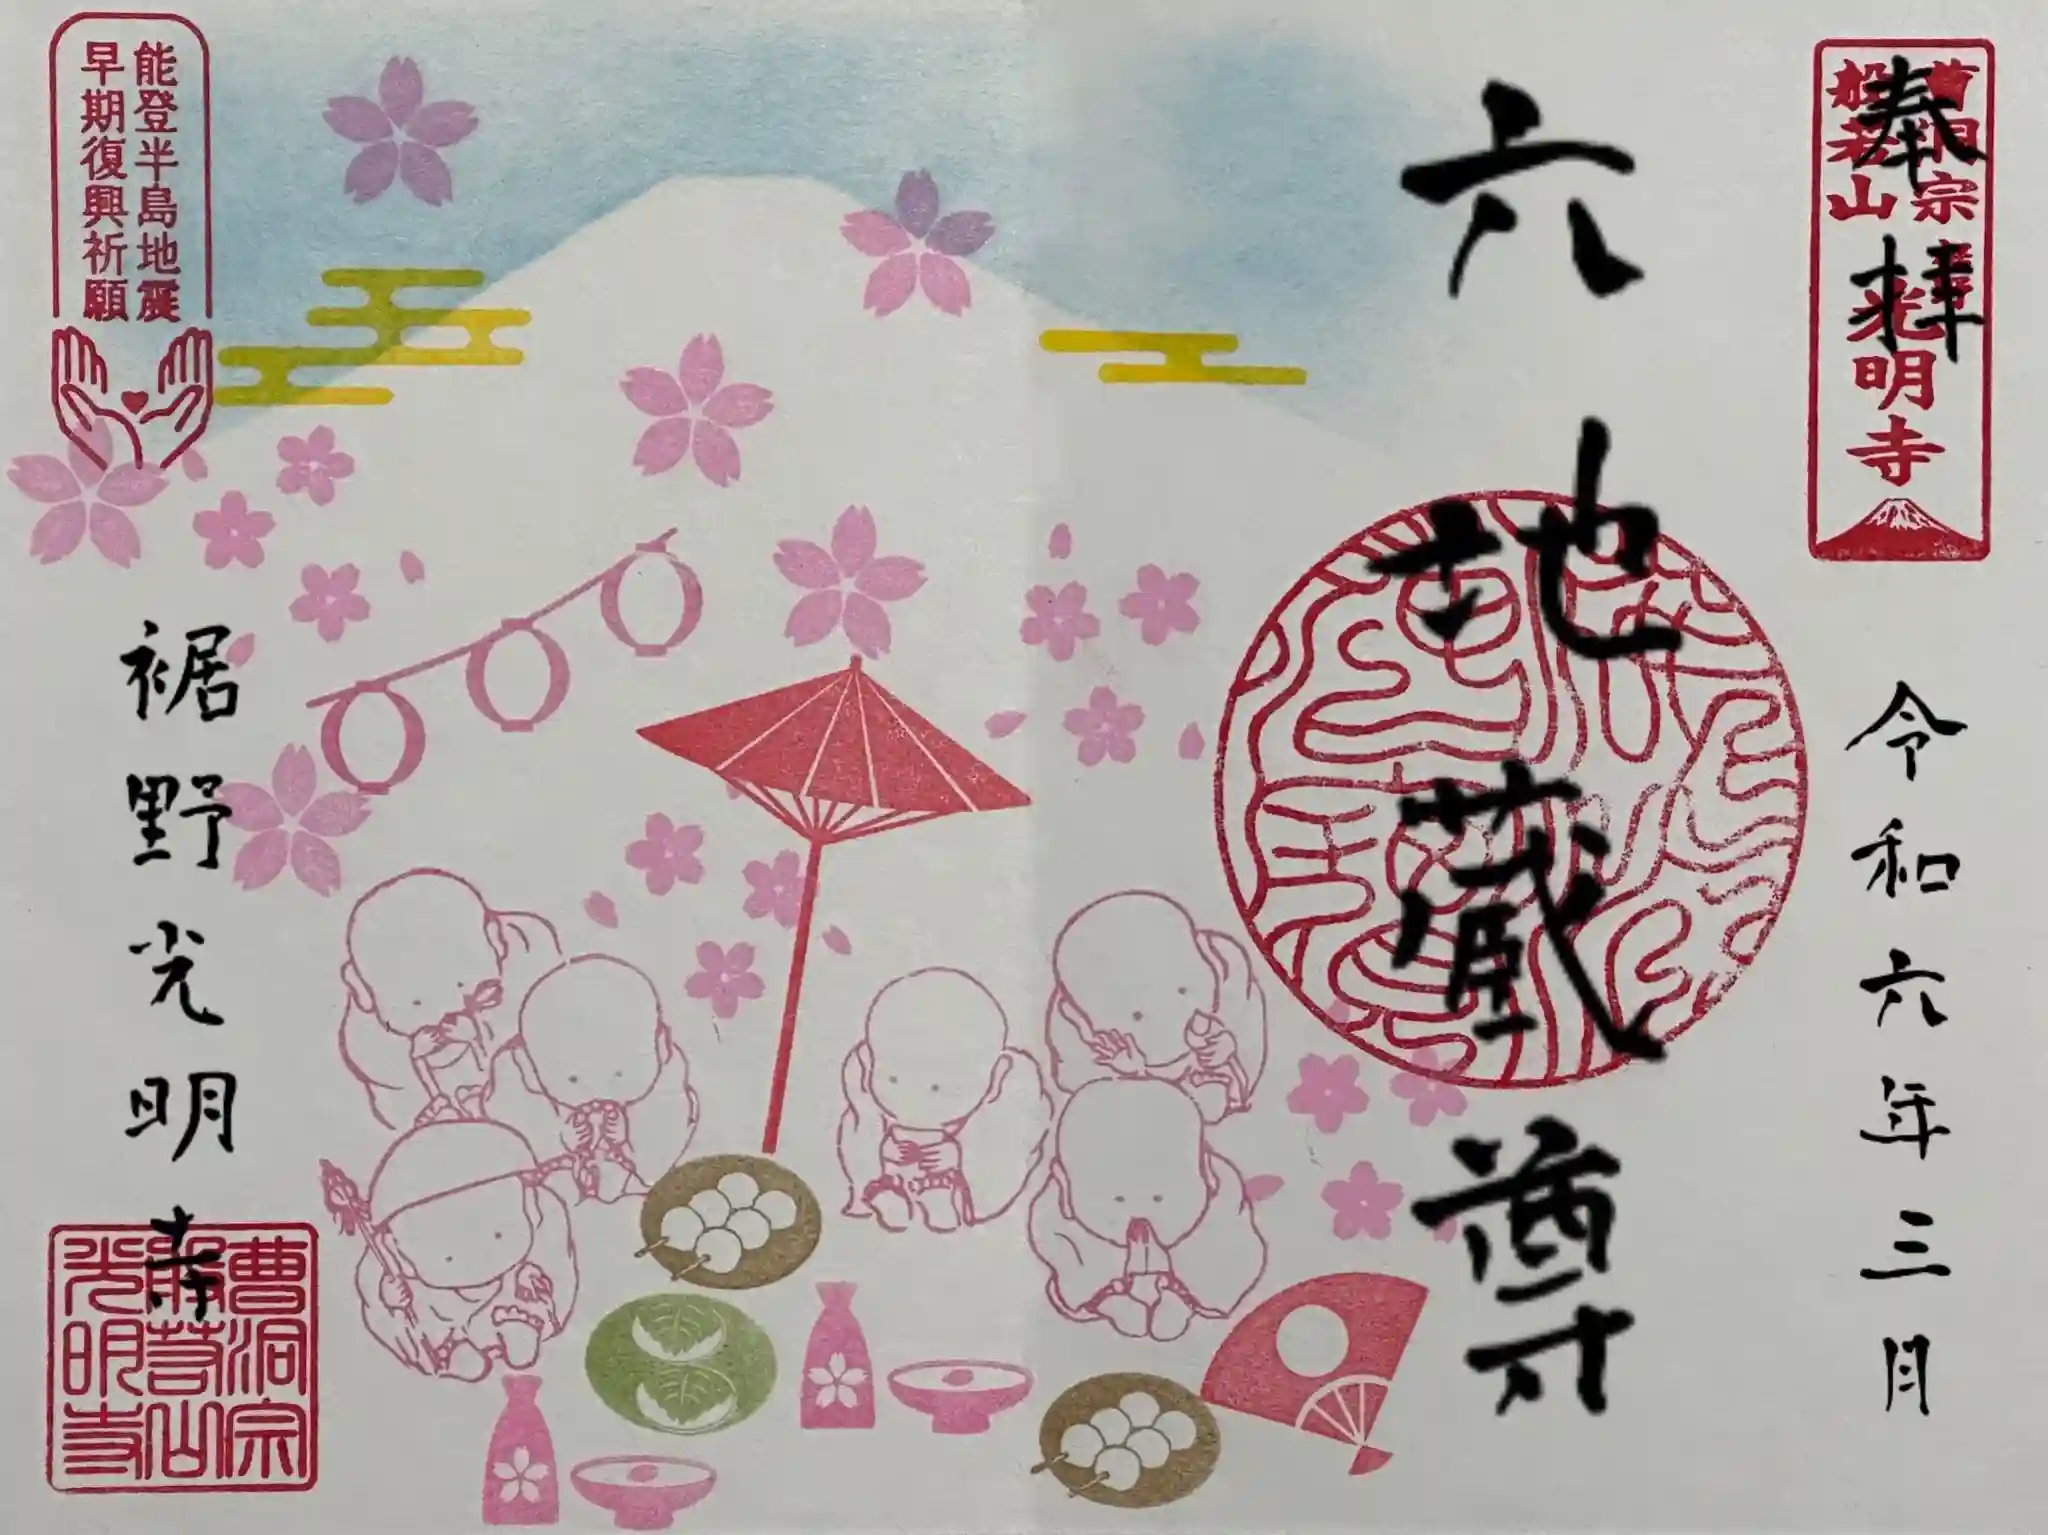 奉拝
曹洞宗
般若山
光明寺
令和六年三月
六地蔵尊
能登半島地震
早期復興祈願
裾野光明寺
曹洞宗
般若山
光明寺